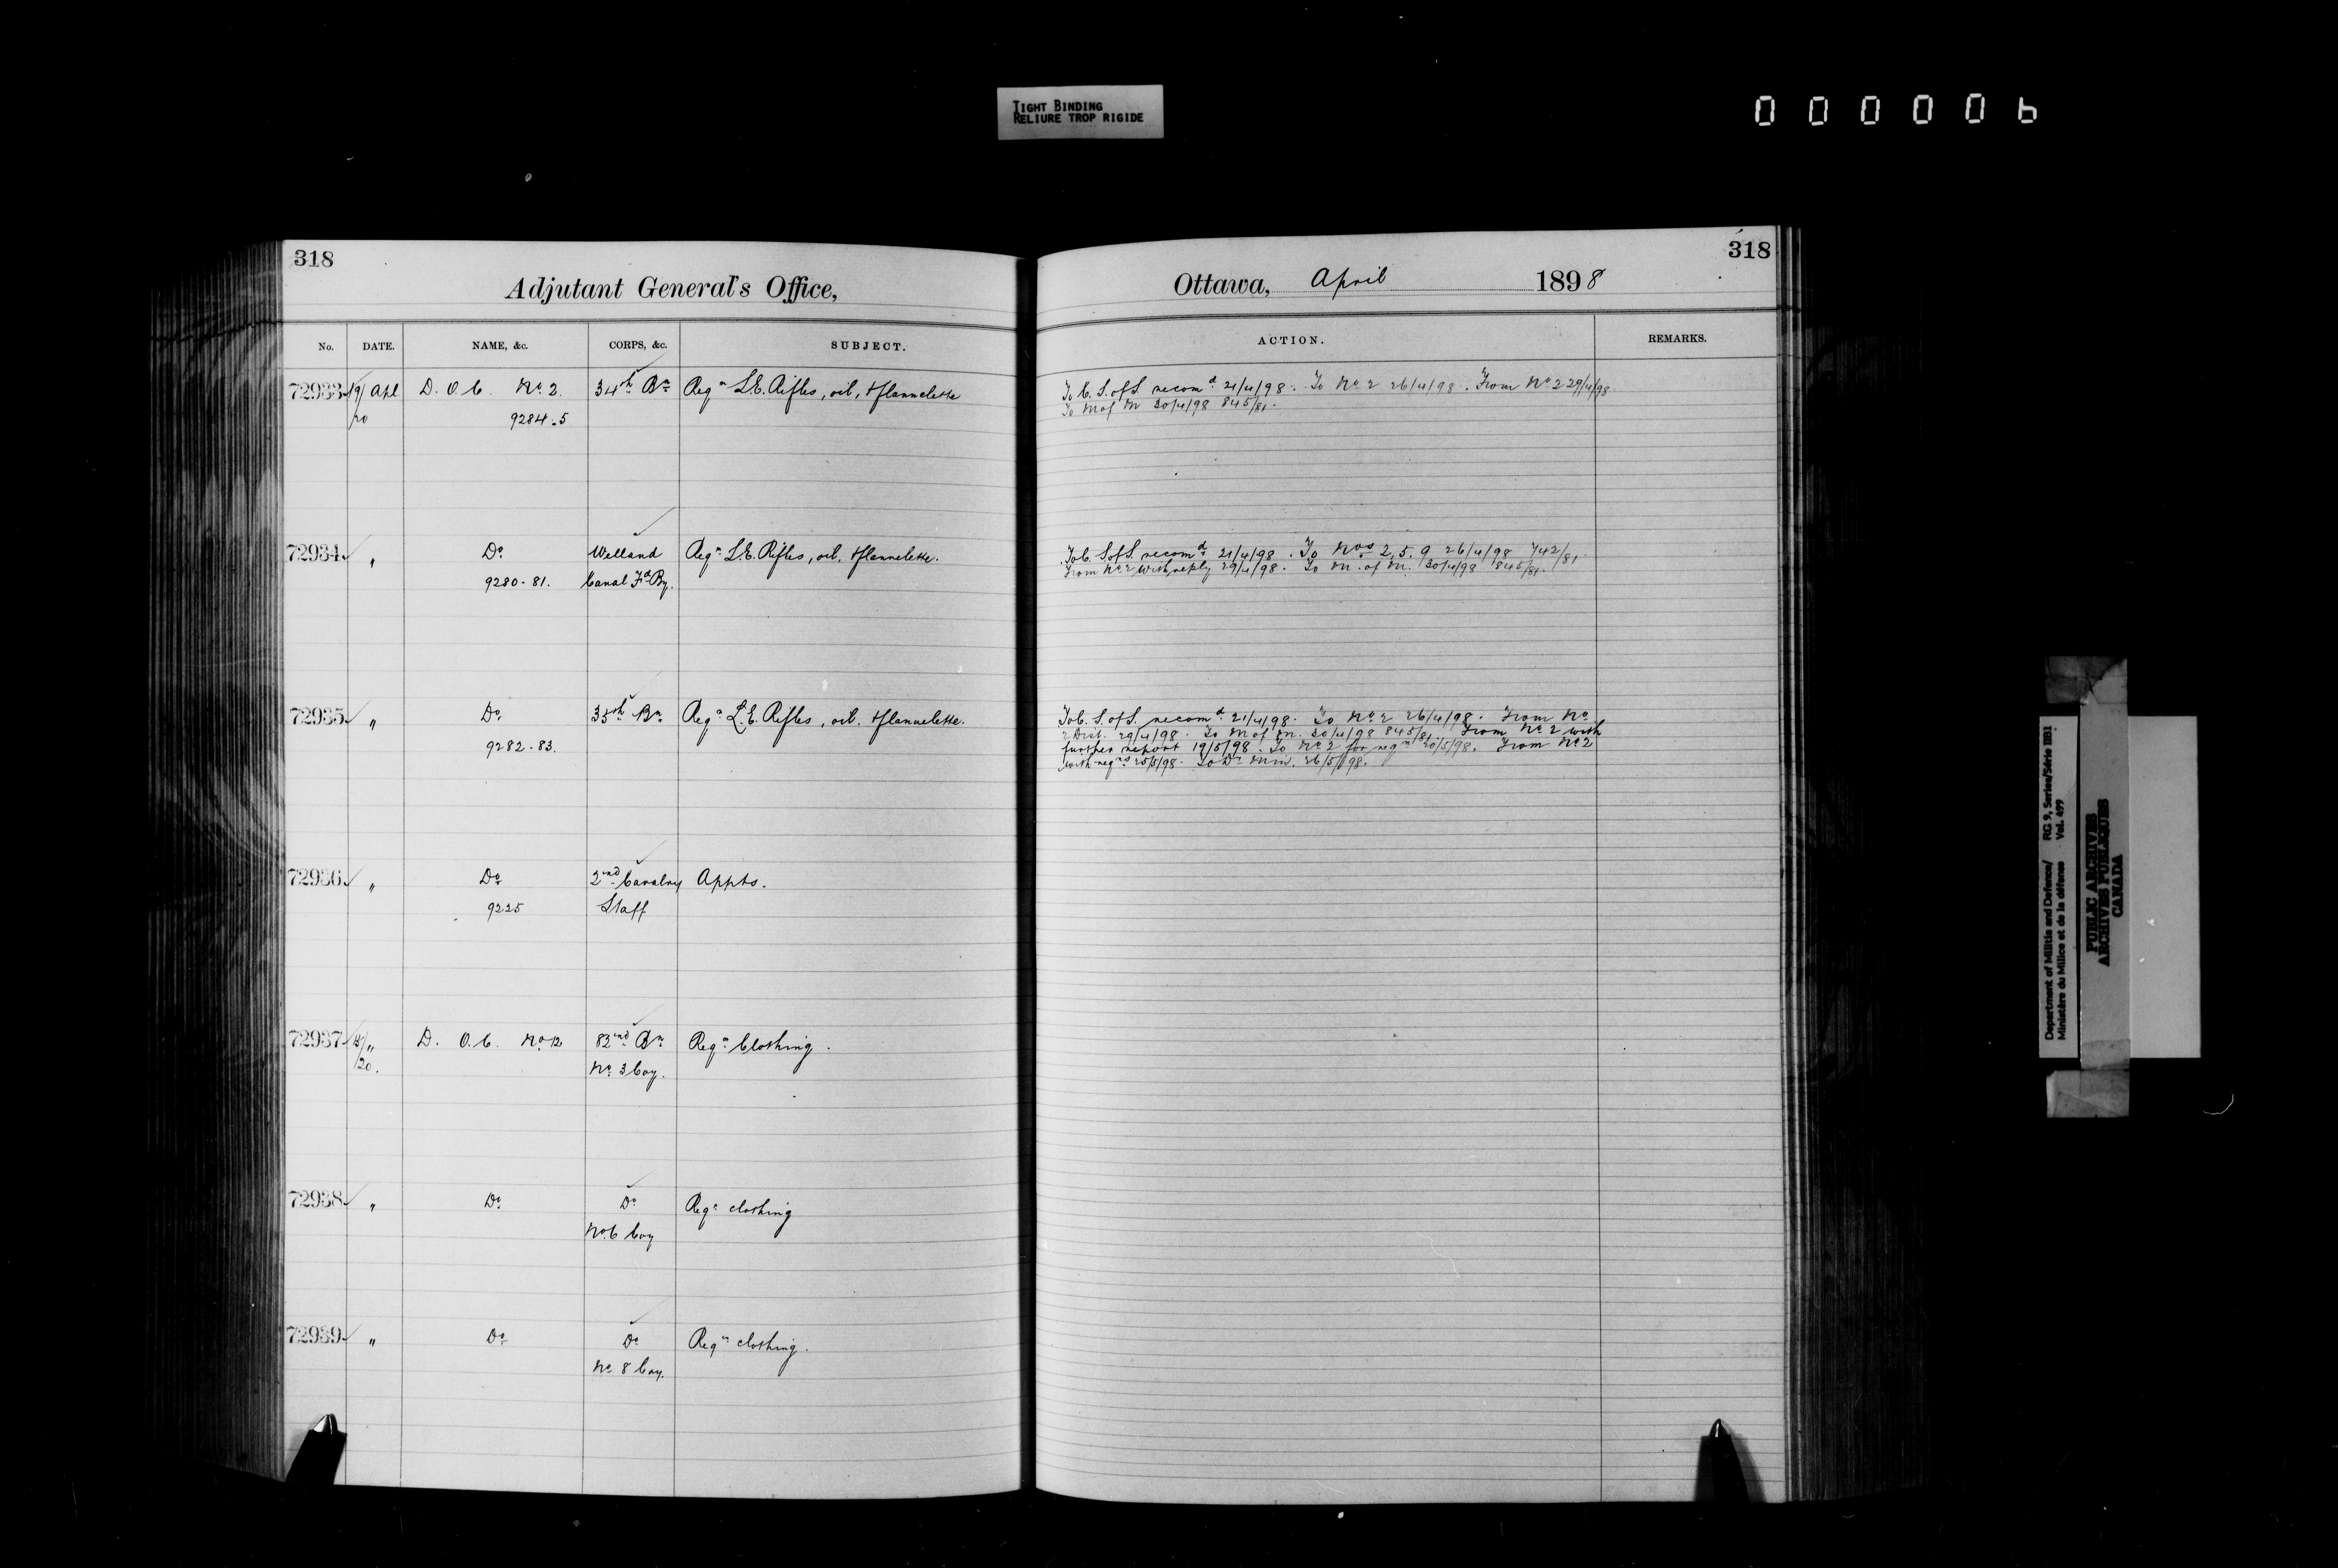 TIGHT BINDING
RELIURE TROP RIGIDE
000006
318
Adjutant General's Office,
No. DATE. NAME, &c. CORPS, &c. SUBJECT.
72933 19/ Apl D. O. C. No 2. 34th Bn Reqn L.E. Rifles, oil, & flannelette
/20 9284-5
72934 " Do Welland Reqn L.E. Rifles, oil, & flannelette.
9280-81. Canal Fd By.
72935 " Do 35th Bn Reqn L.E. Rifles, oil. & flannelette.
9282-83.
72936 " Do 2nd Cavalry Appts.
9225 Staff
72937 " D. O. C. No 12 82nd Bn Reqn Clothing.
/20. No 3 Coy.
72938 " Do Do Reqn clothing
No 6 Coy
72939 " Do Do Reqn clothing.
No 8 Coy.
318
Ottawa, April 1898
ACTION. REMARKS.
To C. S. of S. recomd 21/4/98. To No 2 26/4/98. From No 2 29/4/98
To M of M 30/4/98 845/81.
To C. S of S. recomd 21/4/98. To Nos 2, 5, 9 26/4/98 742/81.
From No 2 with reply 29/4/98. To M. of M. 30/4/98 845/81.
To C. S. of S. recomd 21/4/98. To No 2 26/4/98. From No
2 Dist. 29/4/98. To M of M. 30/4/98 845/81. From No 2 with
further report 19/5/98. To No 2 for reqns 20/5/98. From No 2
with reqns 25/5/98. To Dr Min. 26/5/98.
Department of Militia and Defence/ RG 9, Series/Série IIB1
Ministère du Milice et de la défense Vol. 499
PUBLIC ARCHIVES
ARCHIVES PUBLIQUES
CANADA